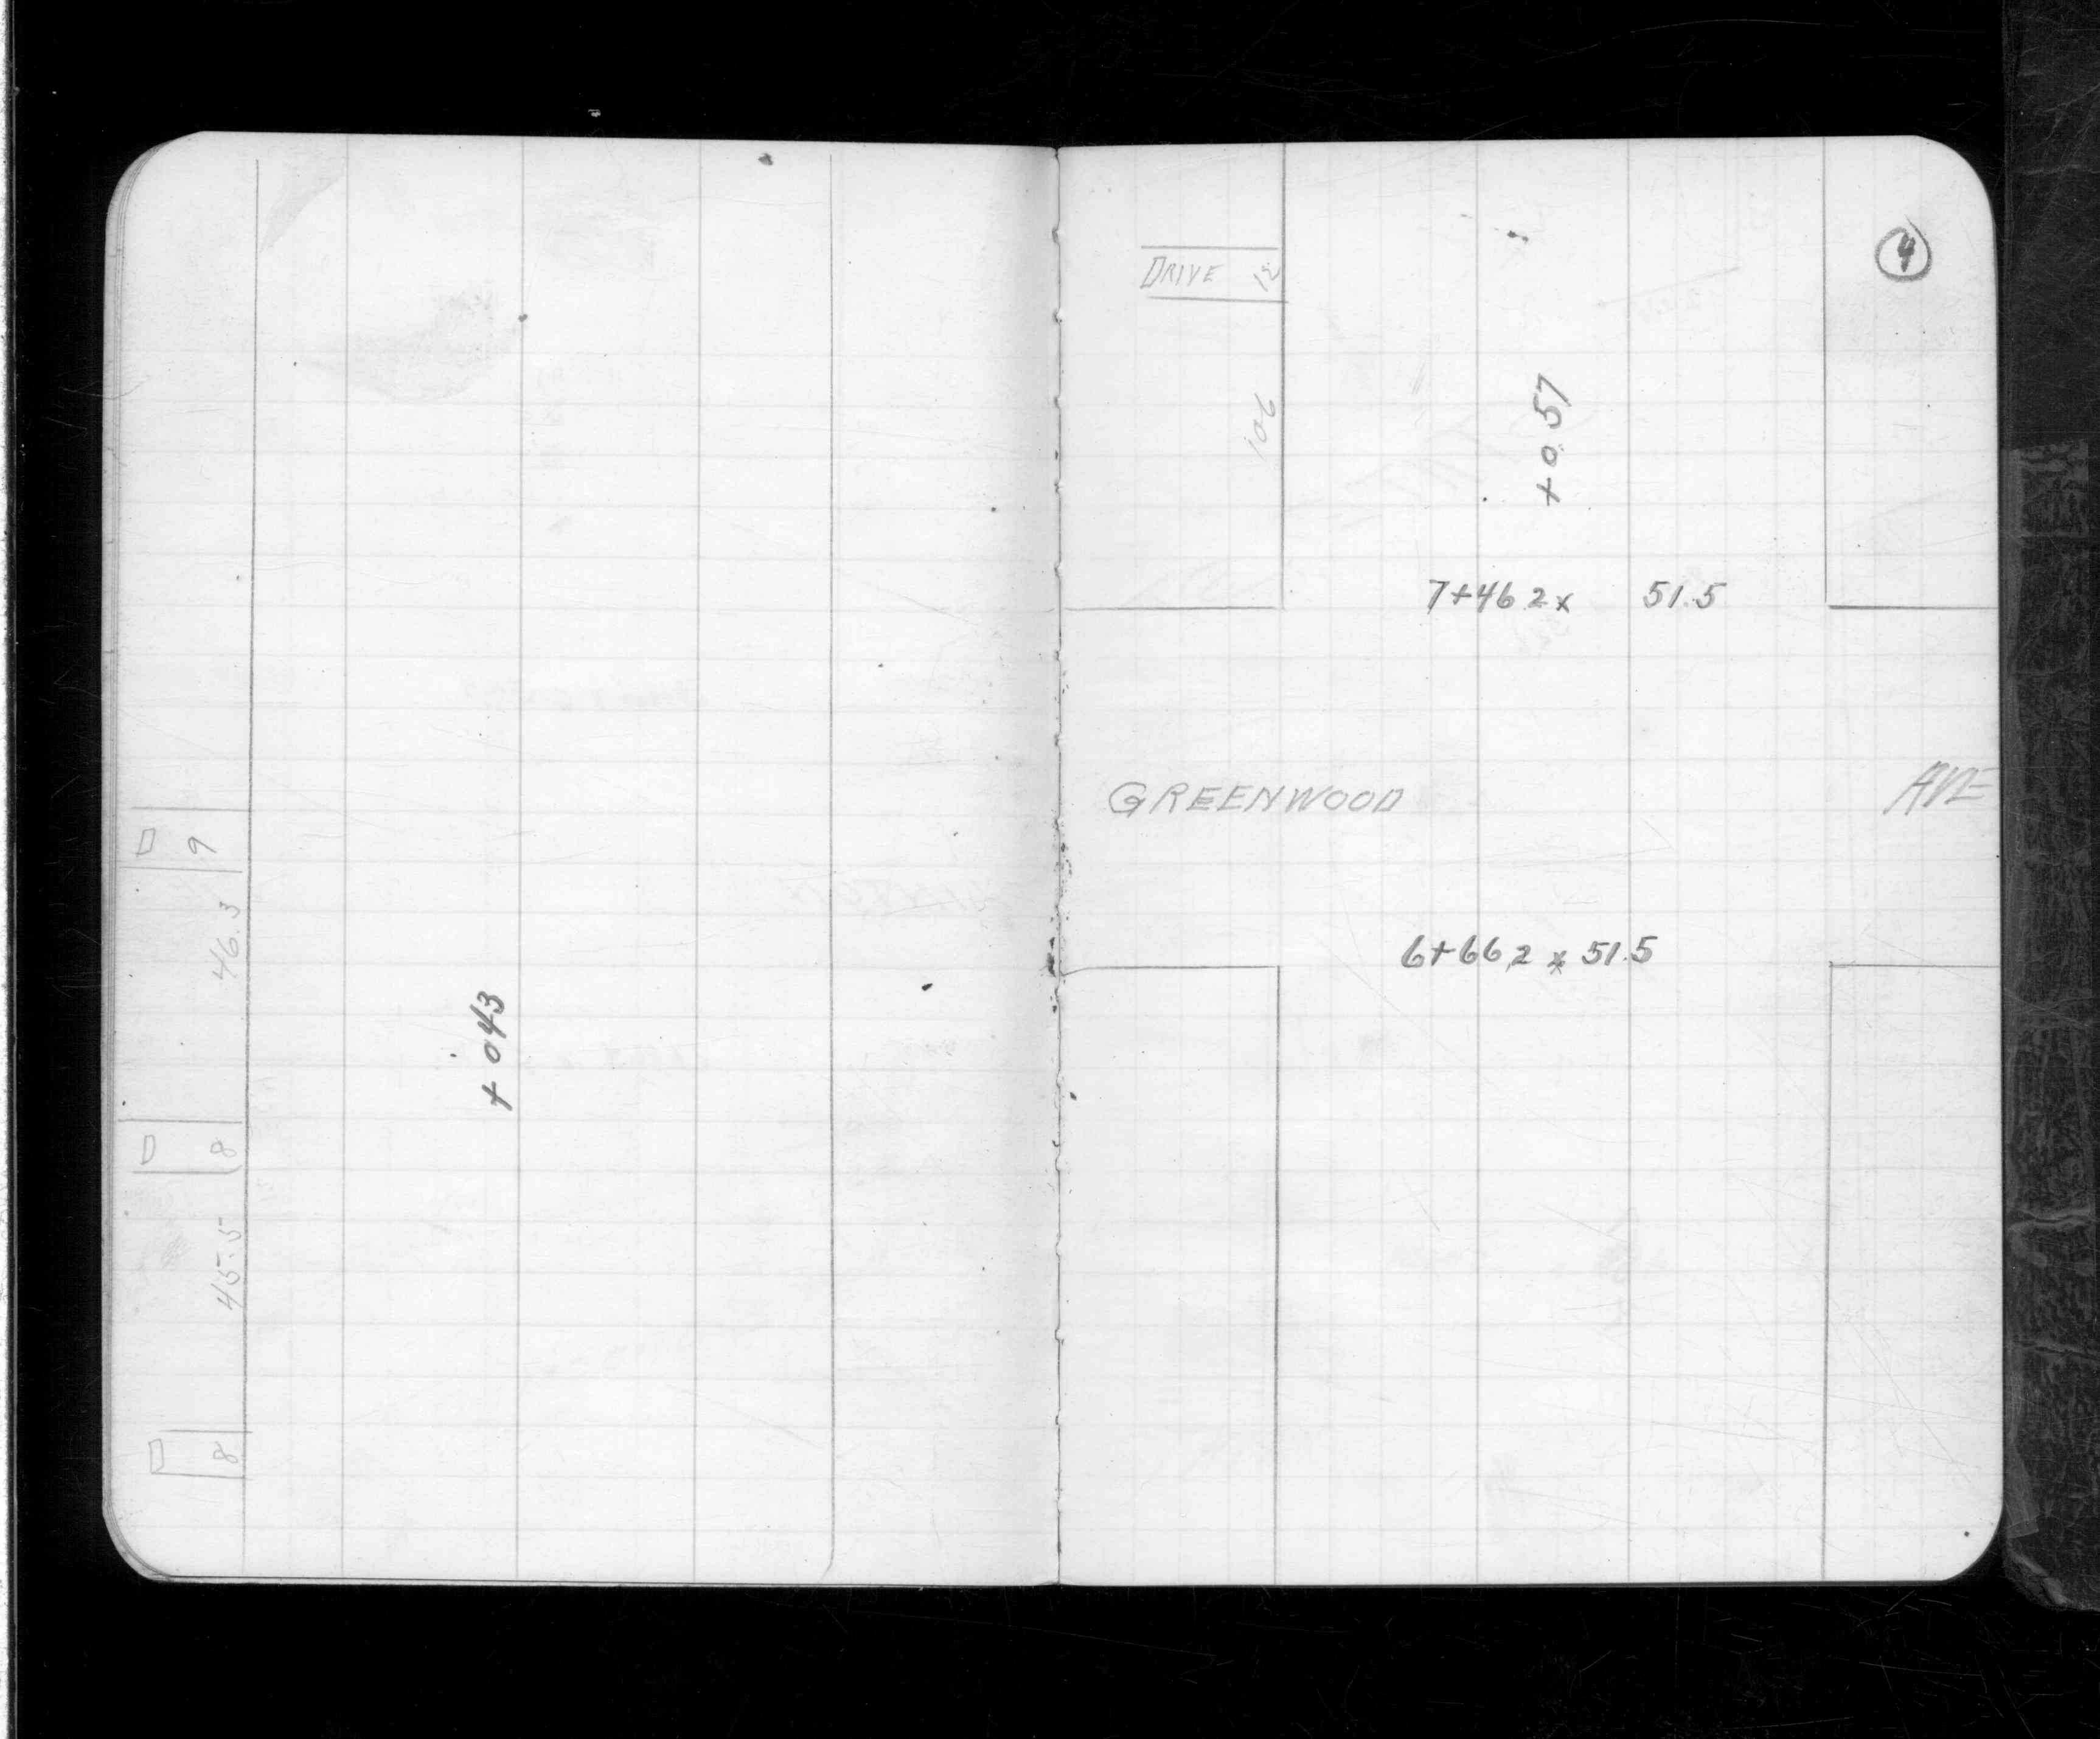 D 9
46.3
+ 043
D 8
45.5
D 8
4
DRIVE 12
106
+ 0.57
7+46 2 x 51.5
GREENWOOD AVE
6+66 2 x 51.5